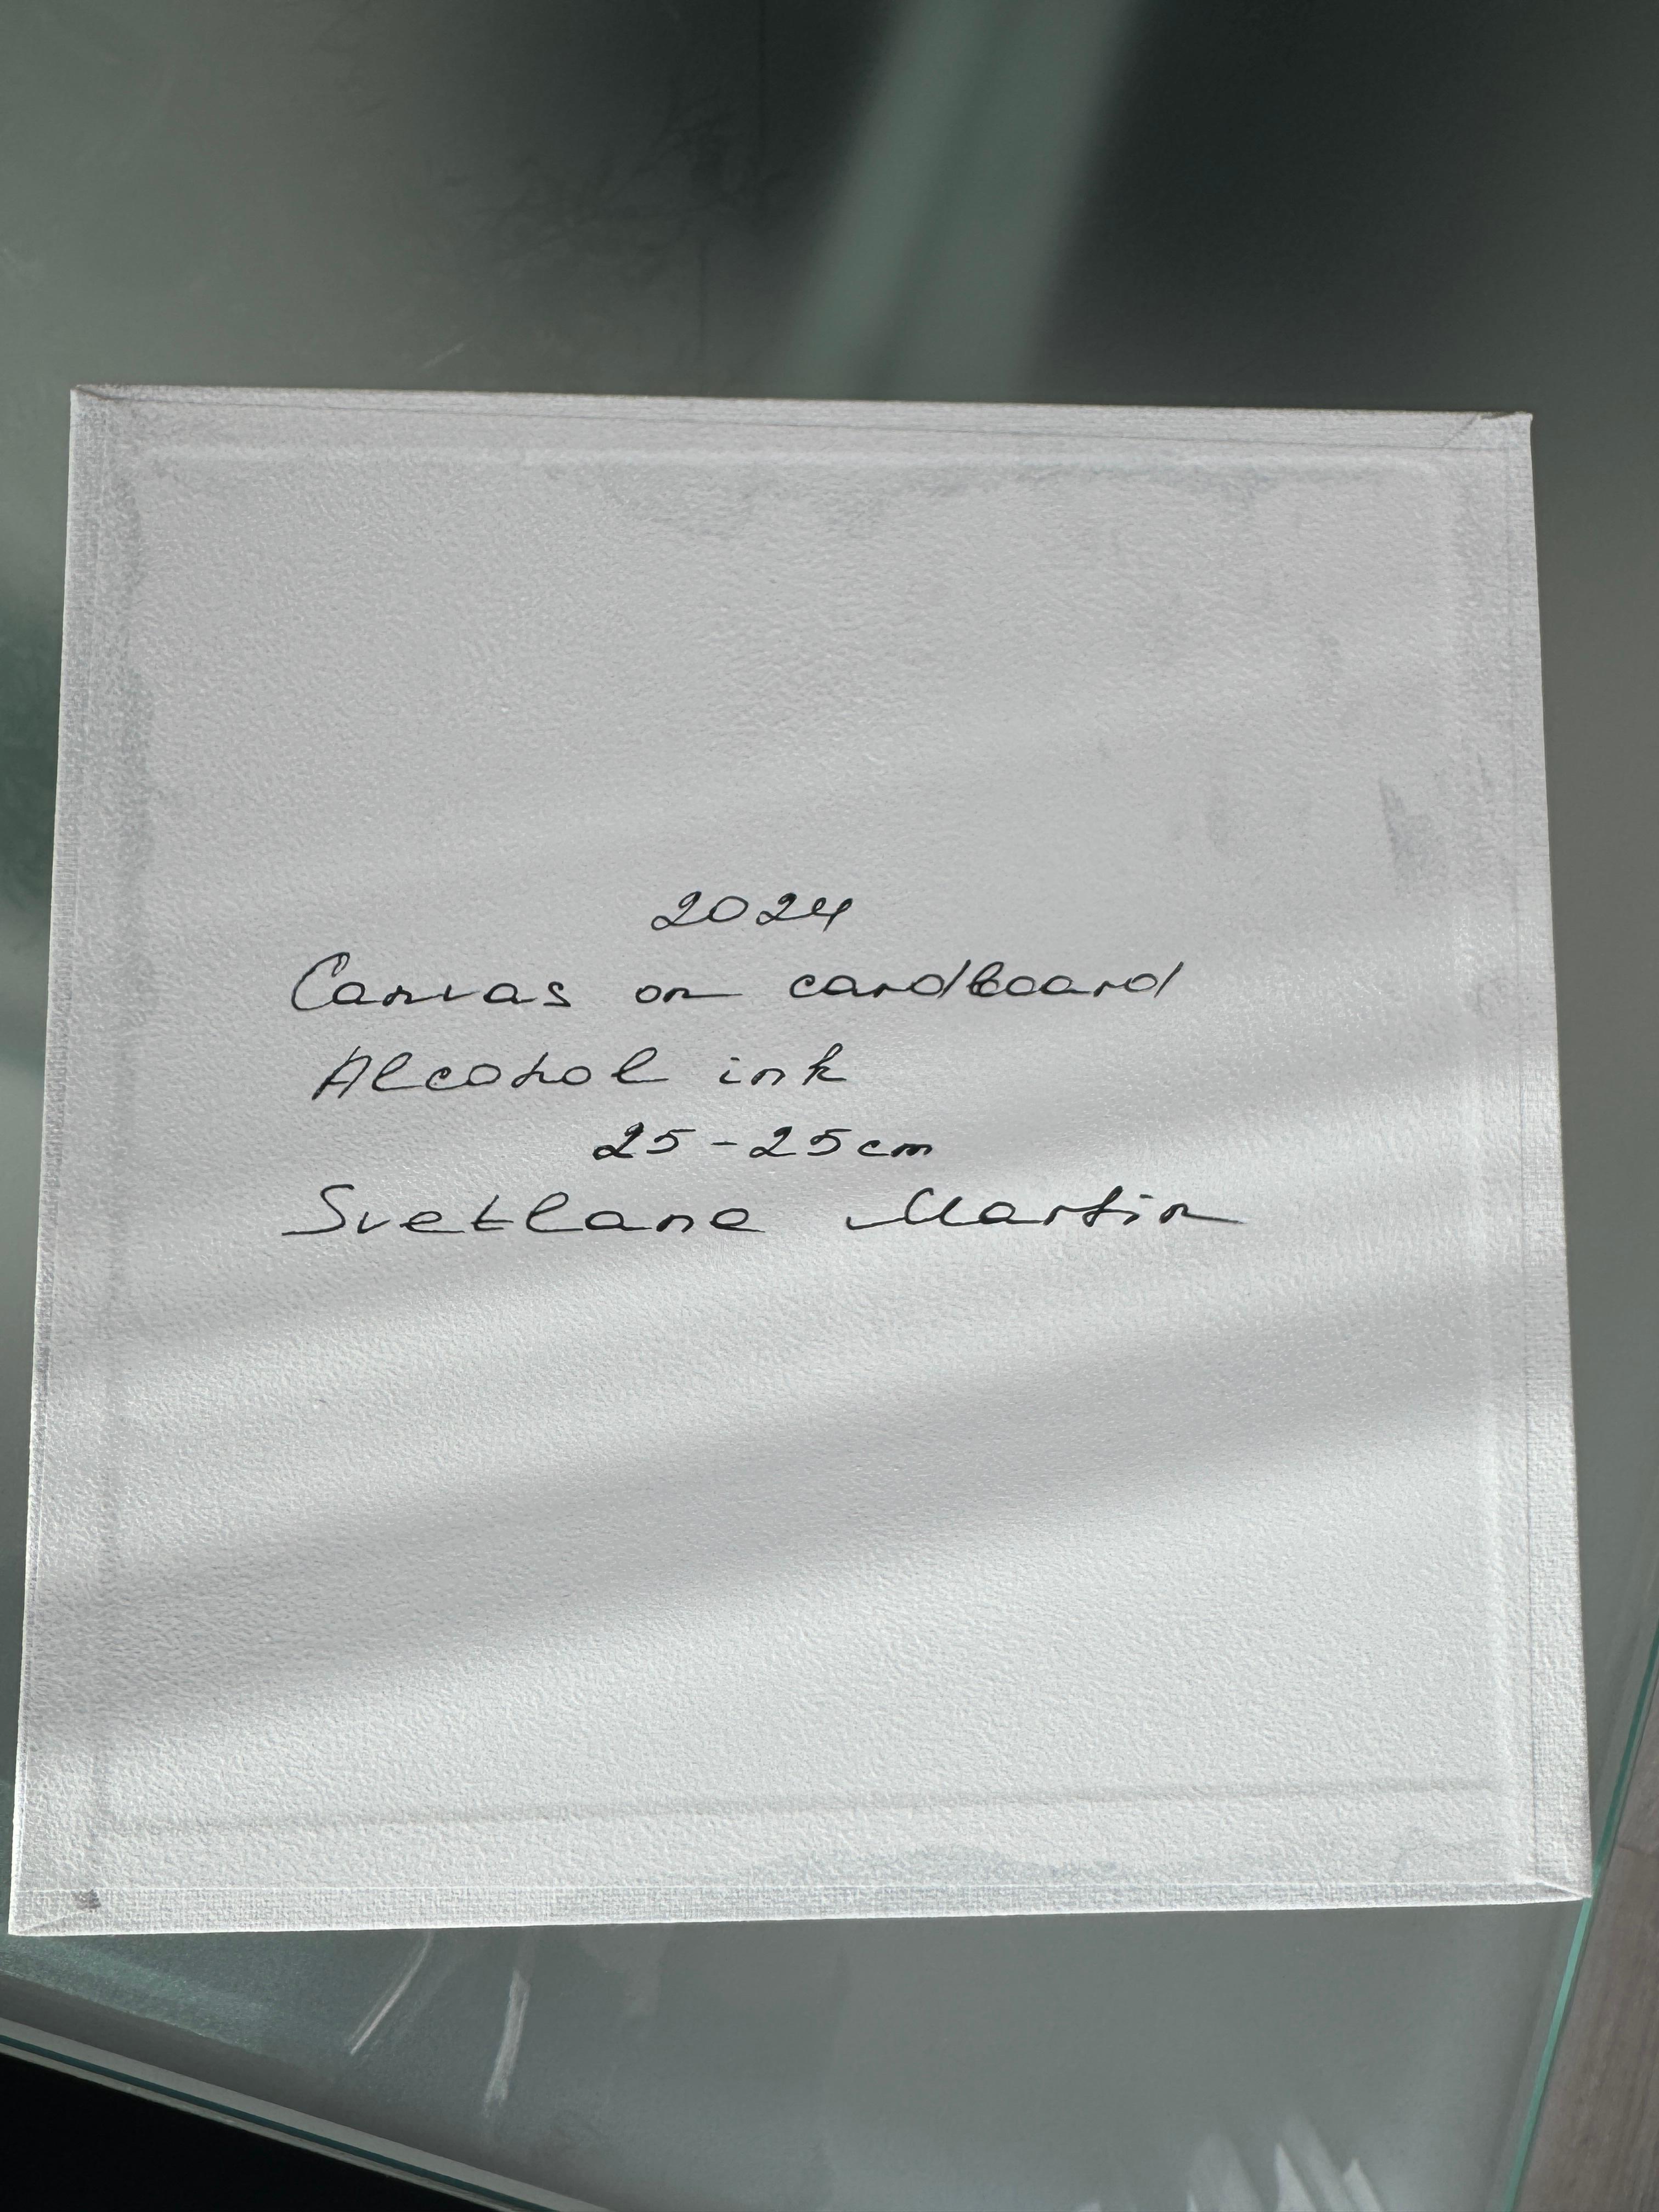 2024
Canvas on cardboard
Alcohol ink
25-25cm
Svetlana Martin